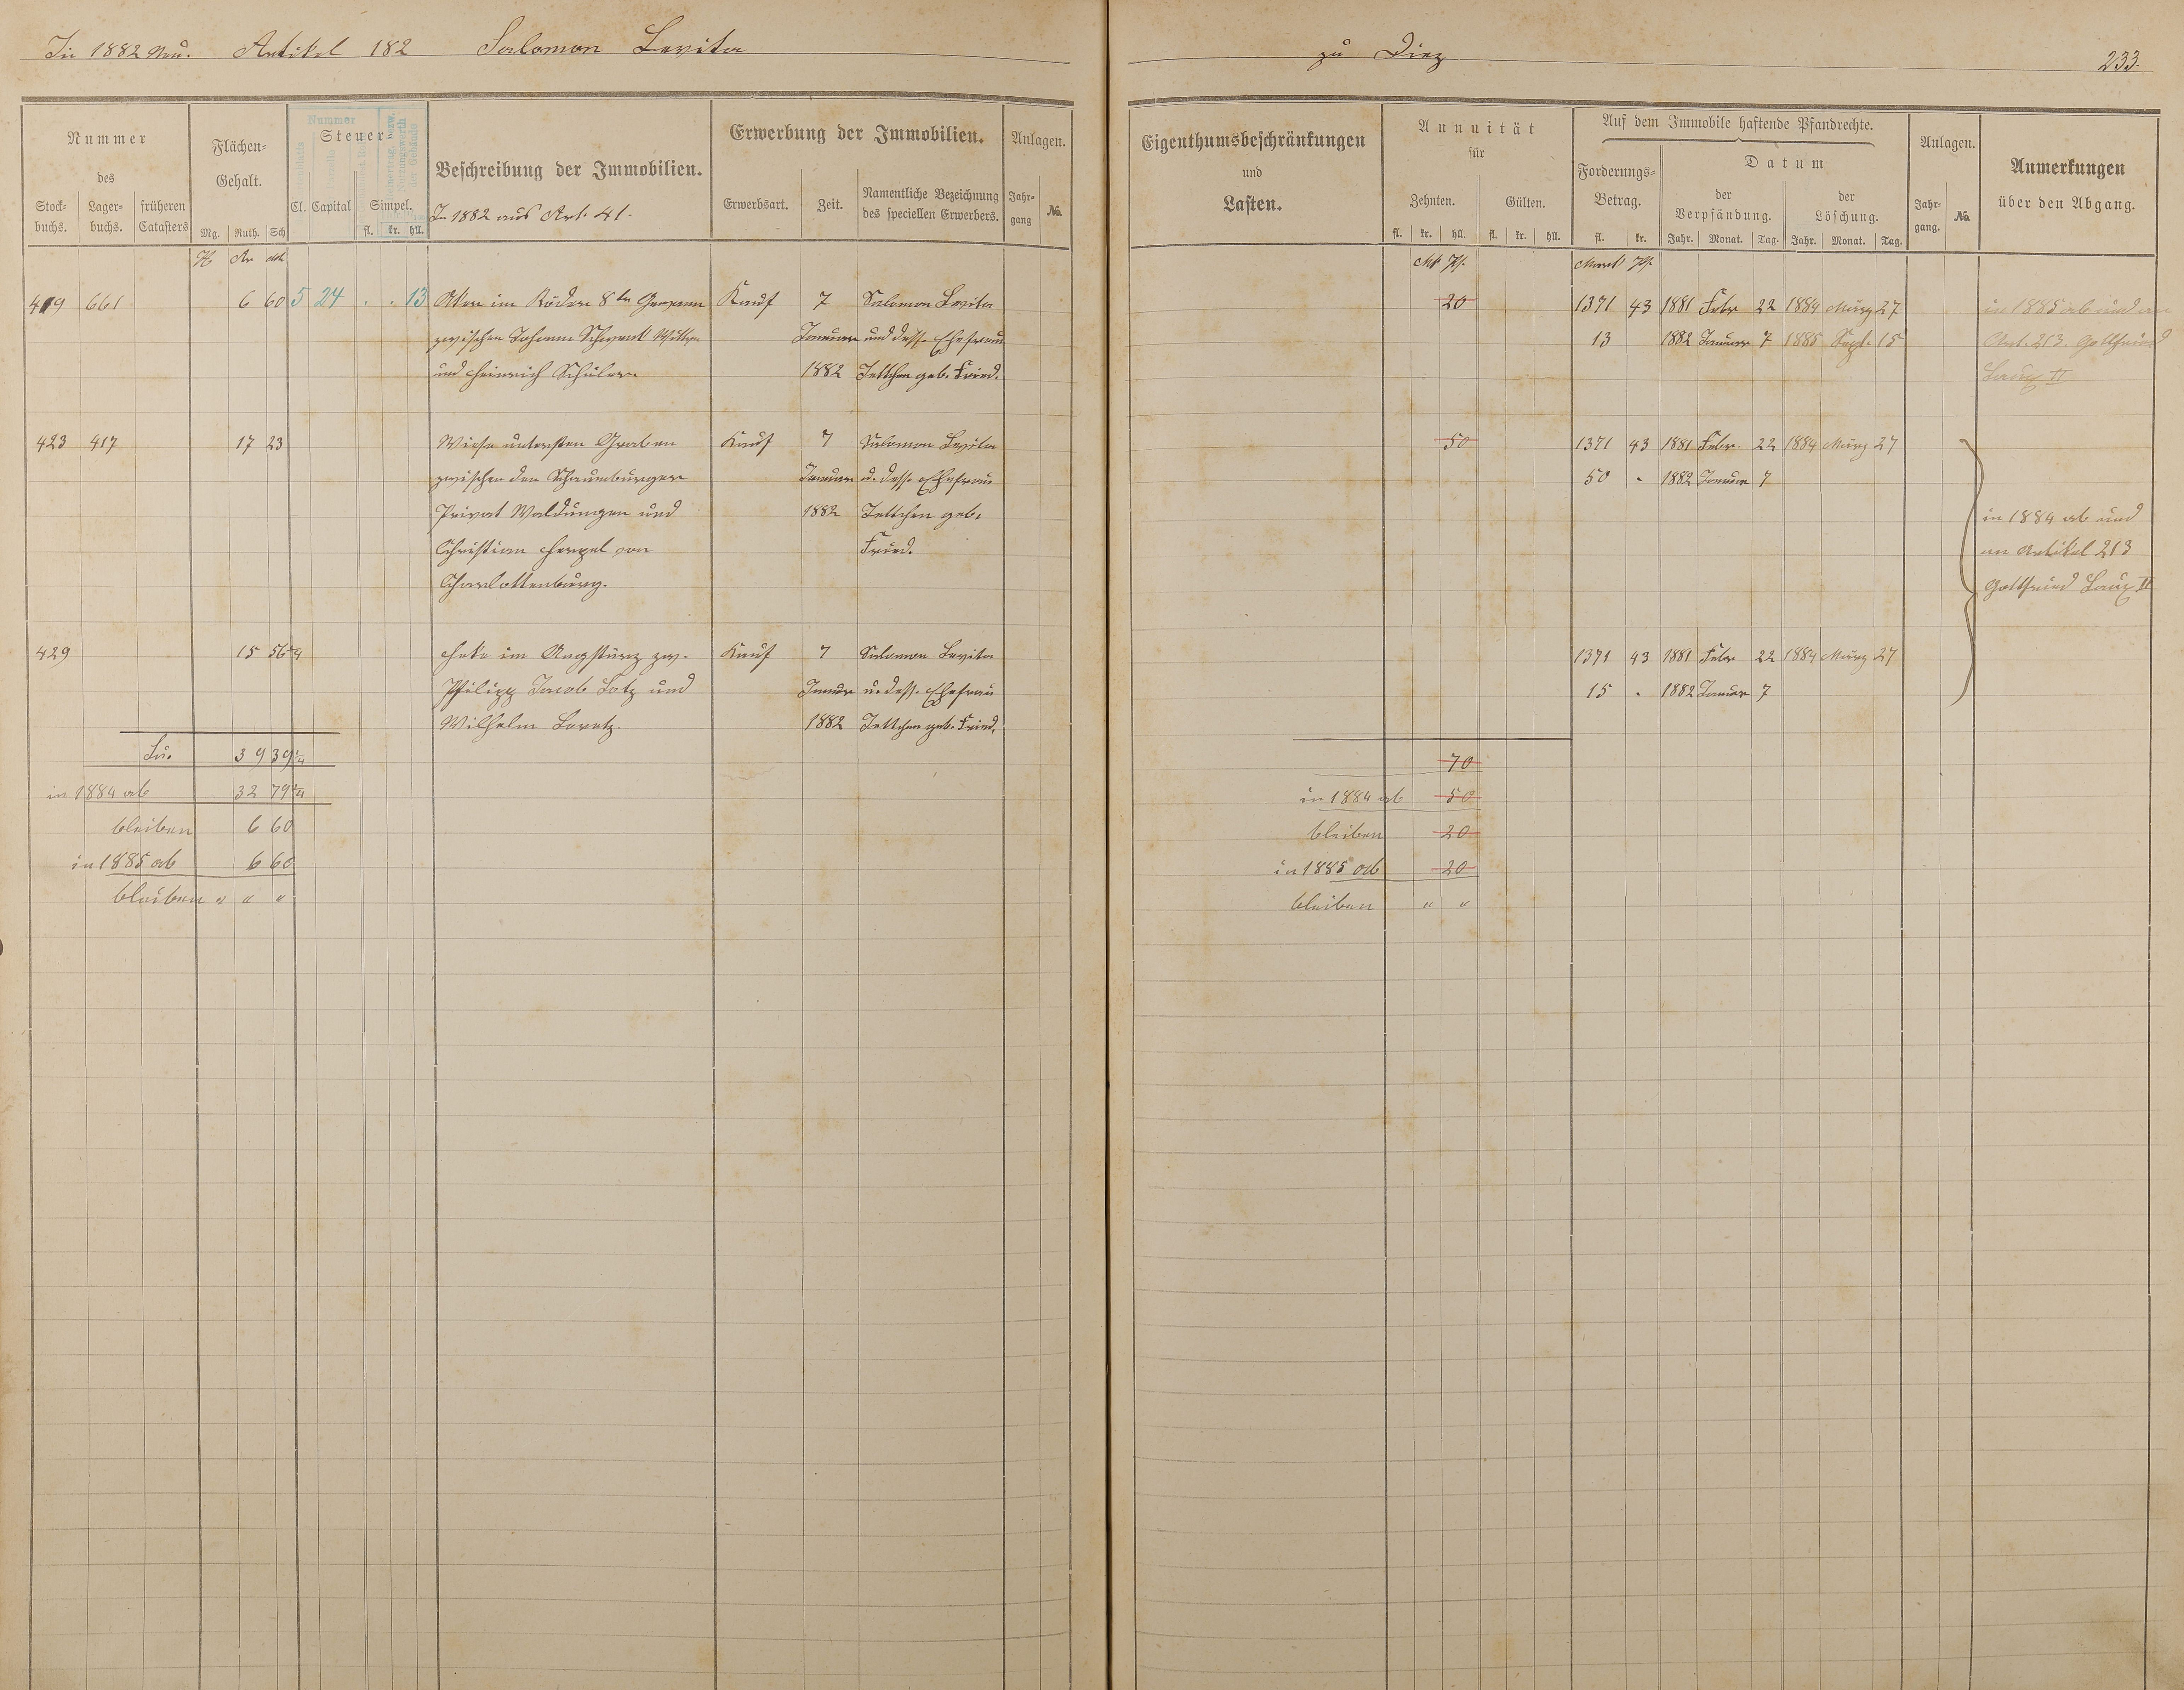 In 1882 Neu. Artikel 182 Salomon Levita
zu Diez 233.
Nummer
des
Stock-
buchs.
Lager-
buchs.
früheren
Catasters
Flächen-
Gehalt.
Mg. Ruth. Sch
Nummer
Steuer
Cl. Capital Simpel.
fl. kr. hll.
Beschreibung der Immobilien.
In 1882 aus Art. 41.
Erwerbung der Immobilien.
Erwerbsart. Zeit.
Namentliche Bezeichnung
des speciellen Erwerbers.
Anlagen.
Jahr-
gang
No.
Eigenthumsbeschränkungen
und
Lasten.
Annuität
für
Zehnten. Gülten.
fl. kr. hll. fl. kr. hll.
Auf dem Immobile haftende Pfandrechte.
Forderungs-
Betrag.
fl. kr.
Datum
der
Verpfändung.
der
Löschung.
Jahr. Monat. Tag. Jahr. Monat. Tag.
Anlagen.
Jahr-
gang.
No.
Anmerkungen
über den Abgang.
H Ar
Mk Pf. Mark Pf.
419 661 6 60 5 24 . . 13 Acker im Röder 8te Gewann Kauf 7 Salomon Levita
zwischen Johann Wittwe Januar und dess. Ehefrau
und Heinrich Schüler. 1882 Jettchen geb. Fried.
20 1371 43 1881 Febr 22 1884 März 27 in 1885 ab und an
13 1882 Januar 7 1885 Sept. 15 Art. 213. Gottfried
Laux II
423 417 17 23 Wiese untersten Graben Kauf 7 Salomon Levita
zwischen den Schaumburger Januar u. dess. Ehefrau
Privat Waldungen und 1882 Jettchen geb.
Christian Hergel von Fried.
Charlottenburg.
50 1371 43 1881 Febr. 22 1884 März 27
50 - 1882 Januar 7
in 1884 ab und
an Artikel 213
Gottfried Laux II
429 15 56 1/4 Hecke im zw. Kauf 7 Salomon Levita
Philipp Jacob Lotz und Januar u. dess. Ehefrau
Wilhelm Loretz. 1882 Jettchen geb. Fried.
1371 43 1881 Febr 22 1884 März 27
15 - 1882 Januar 7
Su. 39 39 1/4
in 1884 ab 32 79 1/4
bleiben 6 60
in 1885 ab 6 60
bleiben " " "
70
in 1884 ab 50
bleiben 20
in 1885 ab 20
bleiben " "